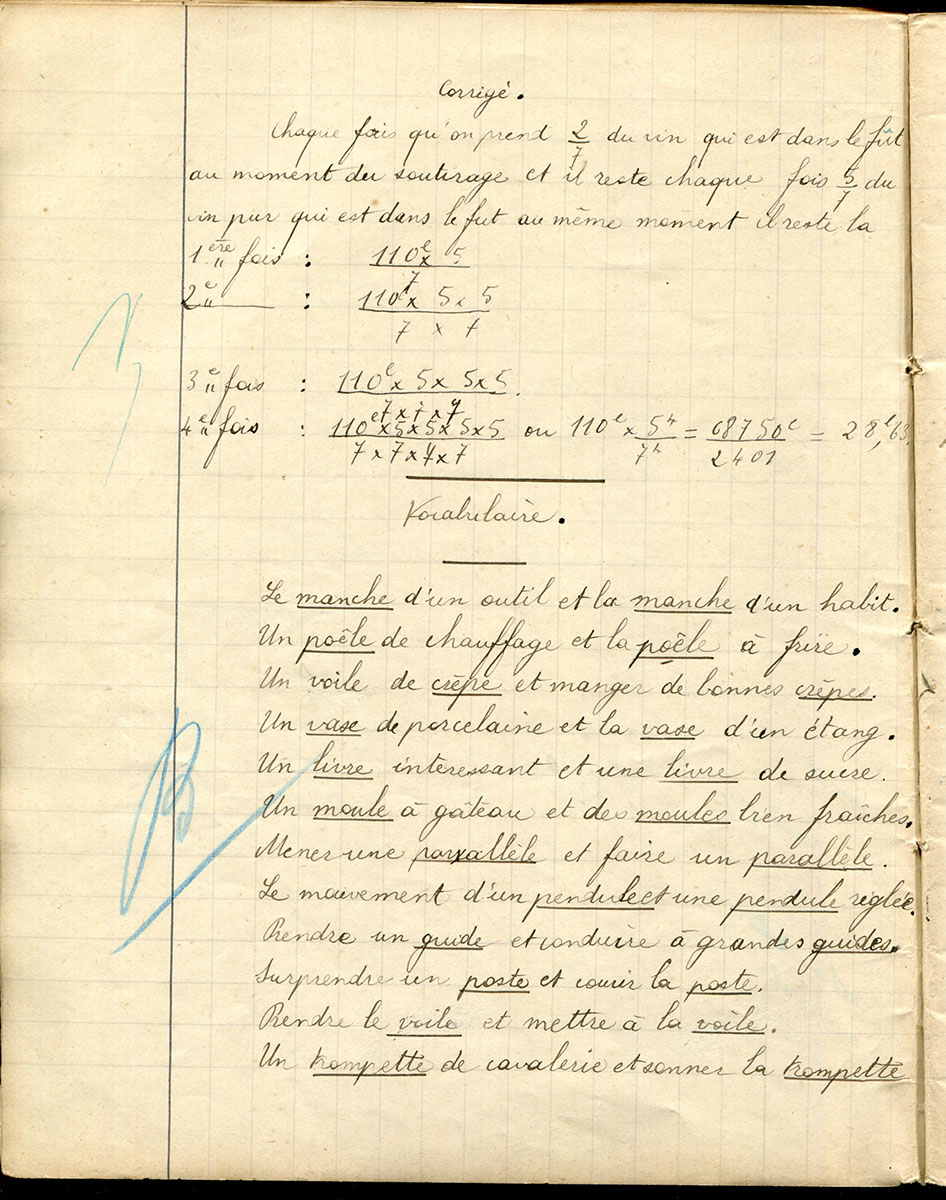 Corrigé.
Chaque fois qu'on prend 2/7 du vin qui est dans le fût
au moment du soutirage et il reste chaque fois 5/7 du
vin pur qui est dans le fut au même moment il reste la
1ère fois : 110l x 5 / 7
2e " : 110l x 5 x 5 / 7 x 7
3e fois : 110l x 5 x 5 x 5 / 7 x 7 x 7
4e fois : 110l x 5 x 5 x 5 x 5 / 7 x 7 x 7 x 7 ou 110l x 5^4 / 7^4 = 68750l / 2401 = 28,l63
Vocabulaire.
Le manche d'un outil et la manche d'un habit.
Un poêle de chauffage et la poêle à frire.
Un voile de crêpe et manger de bonnes crêpes.
Un vase de porcelaine et la vase d'un étang.
Un livre intéressant et une livre de sucre.
Un moule à gâteau et des moules bien fraîches.
Mener une parallèle et faire un parallèle.
Le mouvement d'un pendule et une pendule réglée.
Prendre un guide et conduire à grandes guides.
Surprendre un poste et courir la poste.
Prendre le voile et mettre à la voile.
Un trompette de cavalerie et sonner la trompette